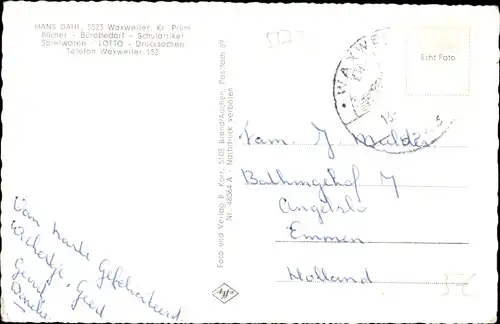 HANS DAHL, 5523 Waxweiler, Kr. Prüm
Bücher - Bürobedarf - Schulartikel
Spielwaren - LOTTO - Drucksachen
Telefon Waxweiler 152
Foto und Verlag B. Korr, 5103 Brand/Aachen, Postfach 69
Nr. 48364 A - Nachdruck verboten
WAXWE
Echt Foto
Fam. J. Mulder
Bathingehof 7
Angelslo
Emmen
Holland
Van harte Gefeliciteerd
Geert
5€